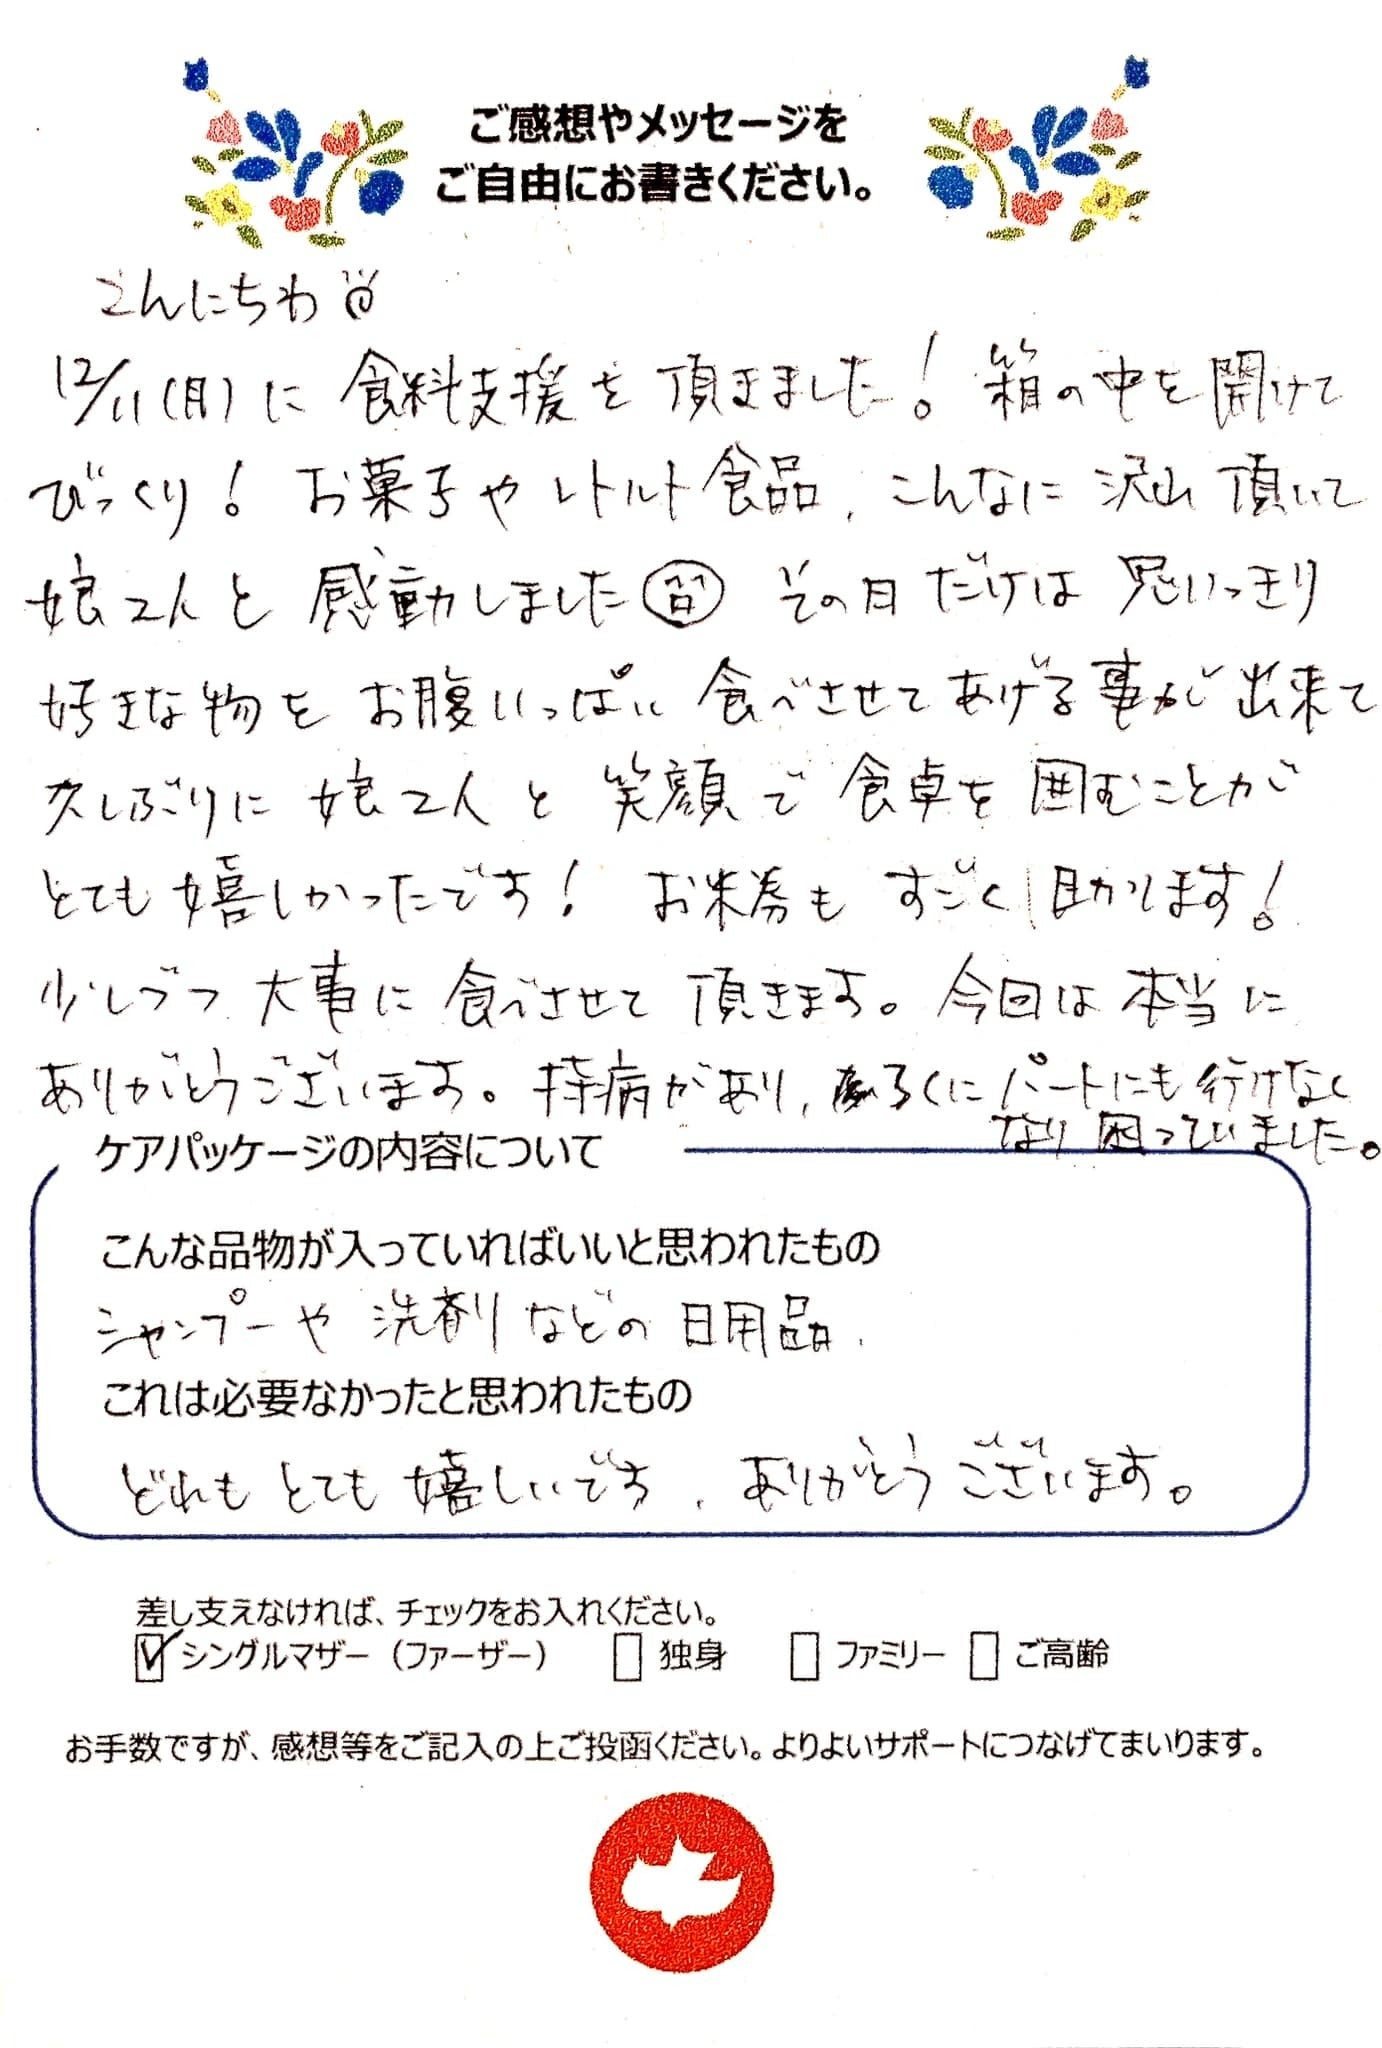 ご感想やメッセージを
ご自由にお書きください。
こんにちわ
12/11(月)に食料支援を頂きました！箱の中を開けて
びっくり！お菓子やレトルト食品、こんなに沢山頂いて
娘2人と感動しましたその日だけは思いっきり
好きな物をお腹いっぱい食べさせてあげる事が出来て
久しぶりに娘2人と笑顔で食卓を囲むことが
とても嬉しかったです！お米券もすごく助かります！
少しづつ大事に食べさせて頂きます。今回は本当に
ありがとうございます。持病があり、ろくにパートにも行けなく
なり困っていました。
ケアパッケージの内容について
こんな品物が入っていればいいと思われたもの
シャンプーや洗剤などの日用品、
これは必要なかったと思われたもの
どれもとても嬉しいです、ありがとうございます。
差し支えなければ、チェックをお入れください。
シングルマザー（ファーザー） 独身 ファミリー ご高齢
お手数ですが、感想等をご記入の上ご投函ください。よりよいサポートにつなげてまいります。